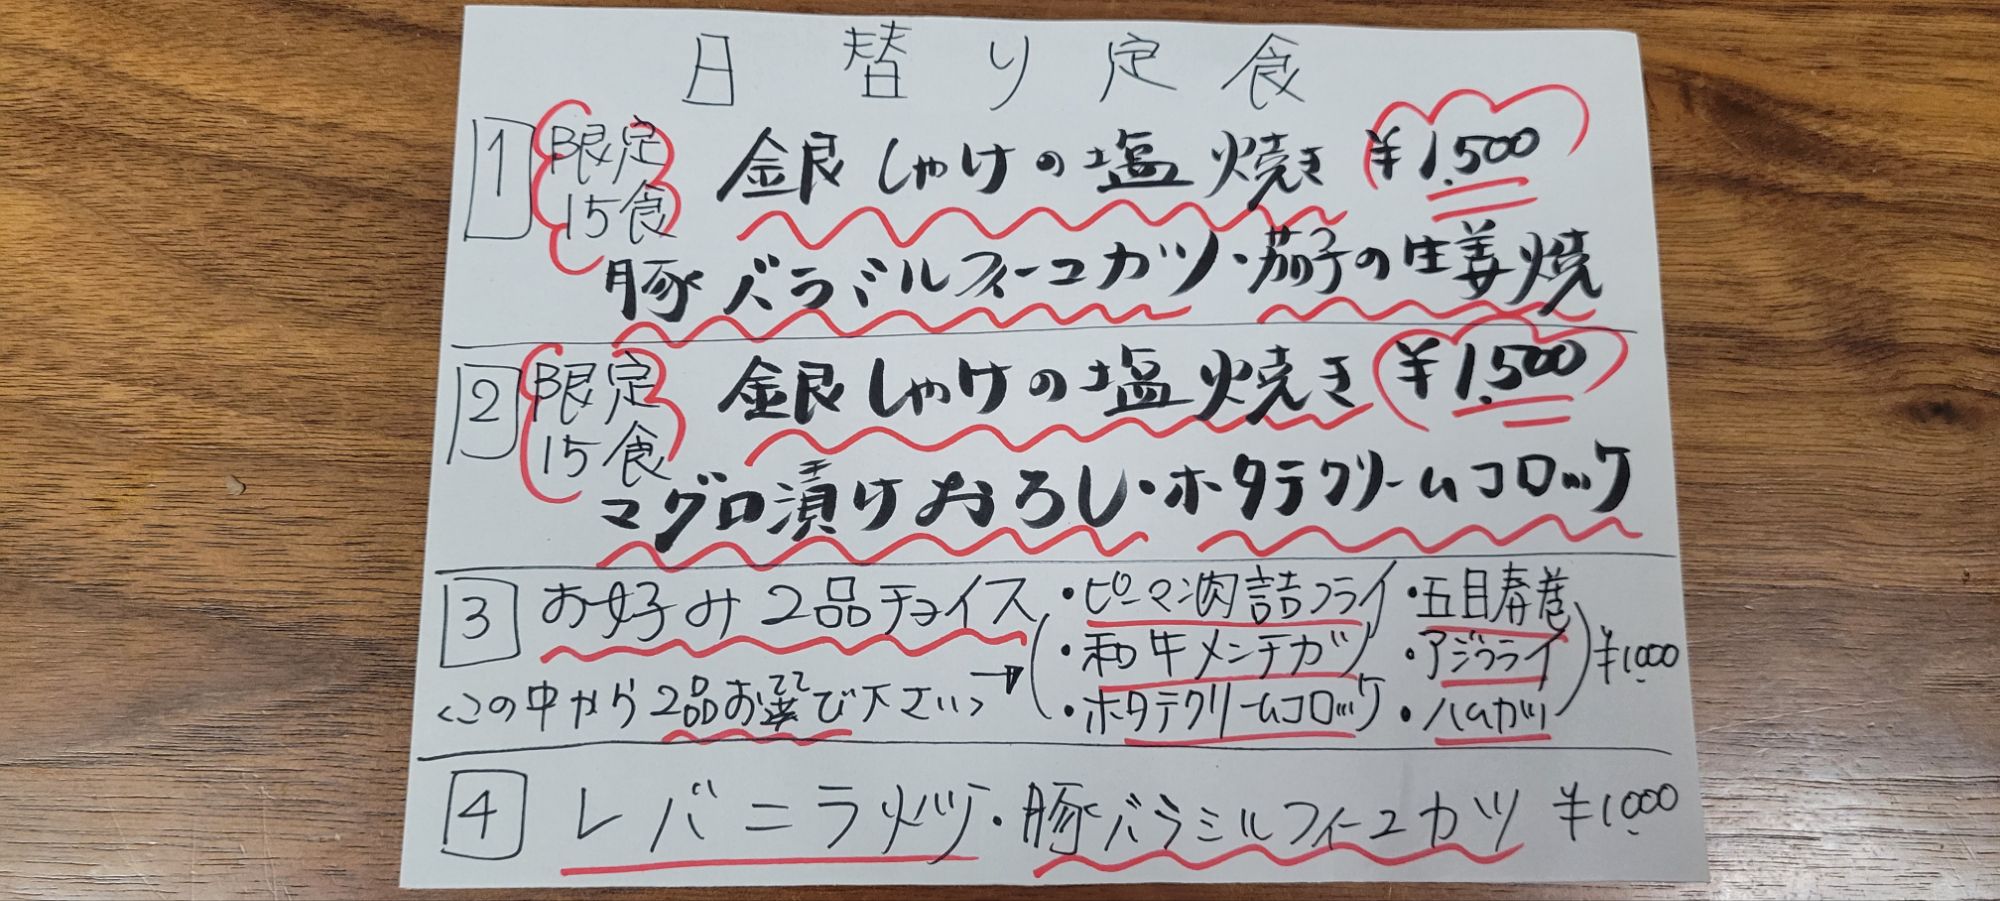 日替り定食
1 限定15食 銀しゃけの塩焼き ¥1,500
豚バラミルフィーユカツ・茄子の生姜焼
2 限定15食 銀しゃけの塩焼き ¥1,500
マグロ漬けおろし・ホタテクリームコロッケ
3 お好み2品チョイス
<この中から2品お選び下さい>→
・ピーマン肉詰フライ ・五目春巻
・和牛メンチカツ ・アジフライ ¥1,000
・ホタテクリームコロッケ ・ハムカツ
4 レバニラ炒メ・豚バラミルフィーユカツ ¥1,000